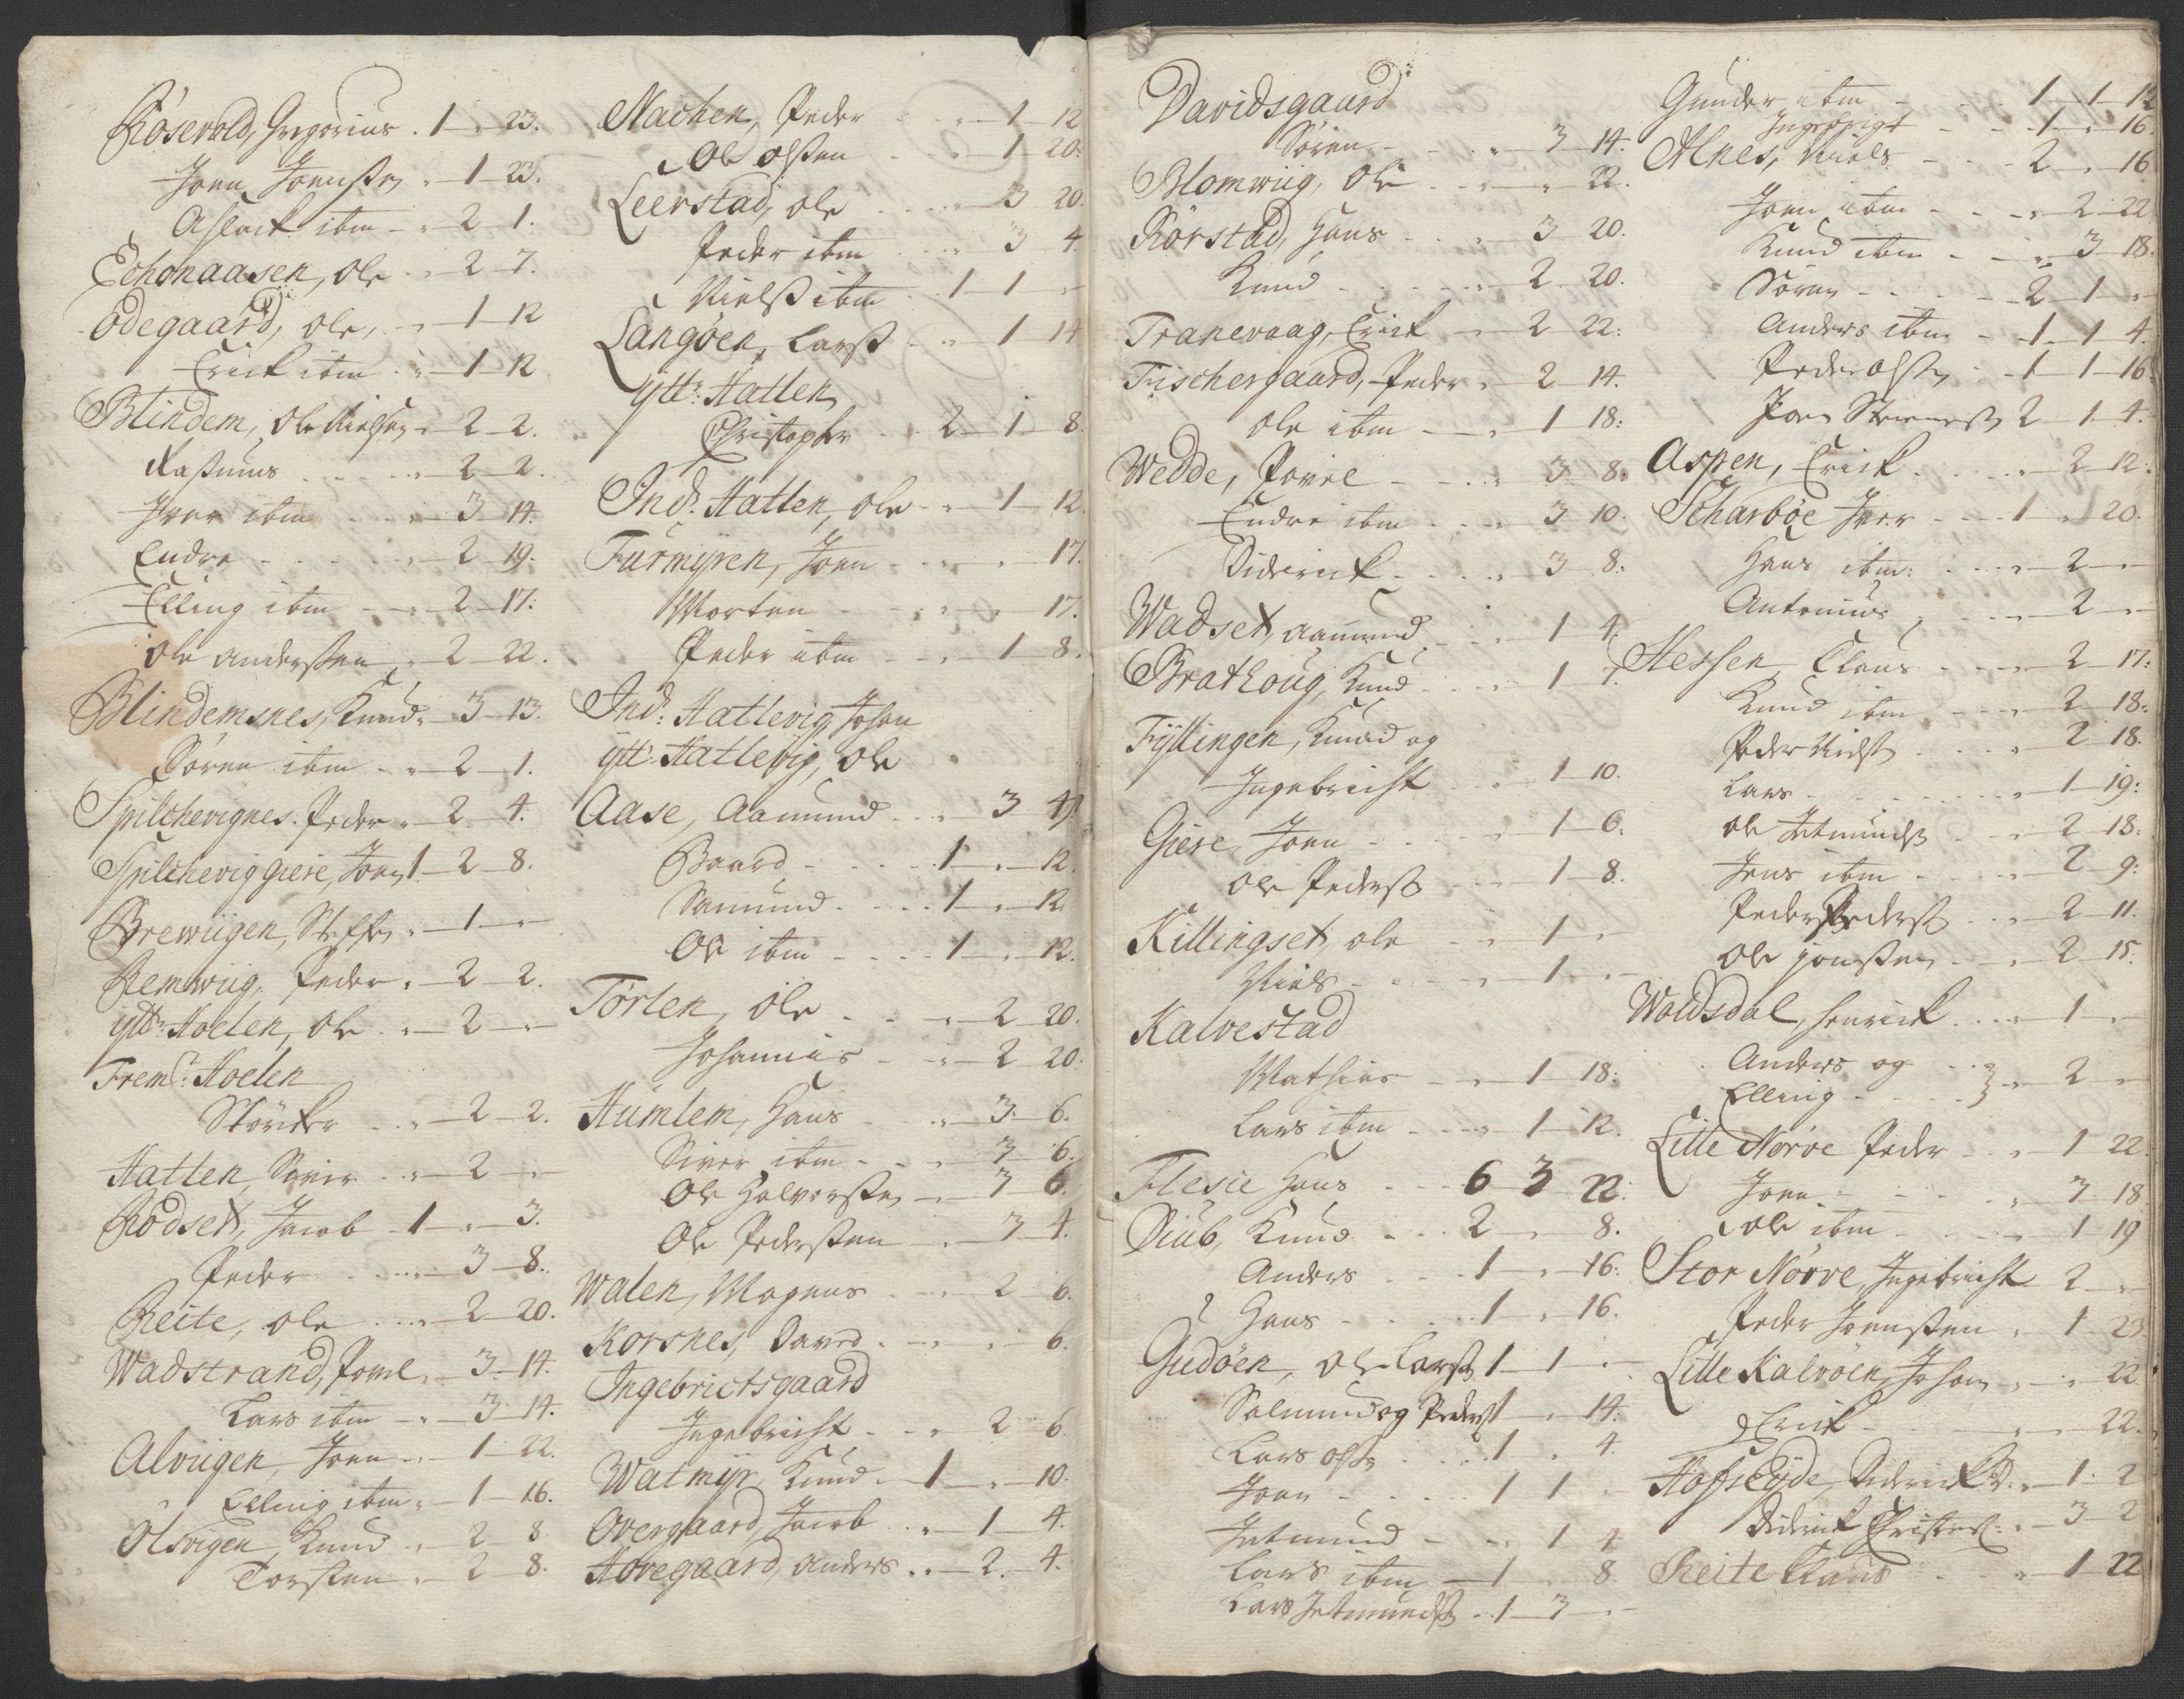 Rosevold, Gregorius . 1 " 23.
Joen Joensen " 1 23.
Aslack ibm " 2 1.
Echonaasen, Ole " 2 7.
Ødegaard, Ole, " 1 12
Erick ibm " 1 12
Blindem, Ole Nielsen " 2 2.
Rasmus " 2 2.
Iver ibm " 3 14.
Endre " 2 19.
Elling ibm " 2 17.
Ole Anderssen " 2 22.
Blindemsnes, Knud " 3 13.
Søren ibm " 2 1.
Spilchevignes. Peder " 2 4.
Spilchevig giere, Joen 1 2 8.
Brewiigen, Steffen " 1 "
Remwiig, Peder " 2 2.
ytt: Hoelen, Ole " 2 "
Frem: Hoelen
" 2 2.
Hatlen, Siver " 2 "
Rødset, Jacob 1 " 3.
Peder " 3 8.
Reite, Ole " 2 20.
Wadstrand, Powel " 3 14.
Lars ibm " 3 14.
Alviigen, Joen " 1 22.
Elling ibm " 1 16.
Olsvigen, Knud " 2 8
Torsten " 2 8.
Nachen, Peder " 1 12
Ole Olssen " 1 20.
Leerstad, Ole " 3 20.
Peder ibm " 3 4.
Nielß ibm 1 1 "
Langøen, Larß " 1 14
ytt: Hatlen
Christopher 2 1 8.
Ind: Hatlen, Ole " 1 12.
Furmyren, Joen " " 17.
Morten " " 17.
Peder ibm " 1 8.
Ind: Hatlevig, Johan
ytt: Hatlevig, Ole
Aase, Aamund " 3 4
Baard 1 " 12.
Samund 1 " 12
Ole ibm 1 " 12.
Tørlen, Ole " 2 20.
Johannis " 2 20.
Humlem, Hans " 3 6.
Siver ibm " 3 6.
Ole Halvorssen " 3 6.
Ole Pederssen " 3 4.
Walen, Mogens " 2 6.
Korsnes, David " " 6.
Ingebrictsgaard
Ingebricht " 2 6
Watmyr, Knud 1 " 10.
Overgaard, Jacob " 1 4.
Hovegaard, Anders " 2 4.
Davidsgaard
Søren " 3 14.
Blomwiig, Ole " " 22.
Rørstad, Hans " 3 20.
Knud " 2 20.
Tranevaag, Erick " 2 22:
Fischergaard, Peder " 2 14.
Ole ibm " 1 18:
Wedde, Powel " 3 8.
Endre ibm " 3 10.
Diderick " 3 8.
Wadset, Aamund " 1 4.
Brathoug, Knud " 1
Fyllingen, Knud og
Ingebricht " 1 10.
Giere, Joen " 1 6.
Ole Pederß " 1 8.
Killingset, Ole " 1 "
Niels " 1 "
Kalvestad
Mathias " 1 18:
Lars ibm " 1 12.
Flesie Hans 6 3 22.
Diub, Knud 2 " 8.
Anders 1 " 16.
Hans 1 " 16.
Gudøen, Ole Larß 1 1 "
Salmund og Peder 1 " 14.
Lars Olß 1 " 4.
Joen 1 1 "
Jetmund " 1 4
Lars ibm 1 " 8.
Lars Jetmundß 1 3 "
Gunder ibm 1 1 12
Ingebrigt 1 " 16.
Alnes, Niels 2 " 16
Joen ibm " 2 22
Knud ibm " 3 18.
Søren 2 1 "
Anders ibm 1 1 4.
Peder Olß 1 1 16.
2 1 4.
Aspen, Erick " 2 12.
Scharbøe Iver 1 " 20.
Hans ibm: " 2 "
Antonius, " 2 "
Hessen, Claus " 2 17:
Knud ibm " 2 18.
Peder Nielß " 2 18.
Lars " 1 19:
Ole Jetmundß " 2 18.
Jens ibm " 2 9:
Peder Pederß " 2 11.
Ole Jonssen " 2 15.
Woldsdal, Henrick " 1 "
Anders og
Elling } " 2 "
Litle Nørve Peder " 1 22.
Joen " 3 18
Ole ibm " 1 19
Stor Nørve, Ingebricht 2 "
Peder Joenssen " 1 23.
Litle Kalvøen, Johan " " 22
Erick " " 22.
Hofseyde, Diderick D: " 1 2
Diderick Christens: " 3 2
Reite Claus " 1 22